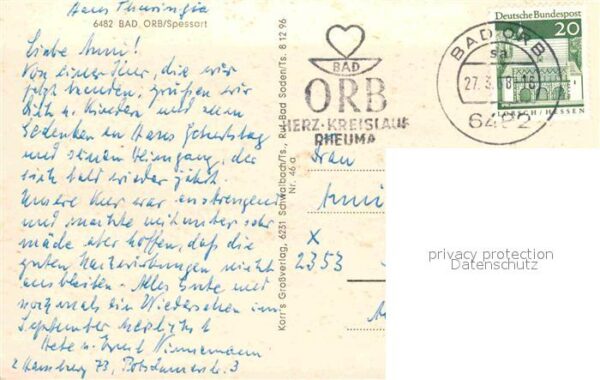 Haus Thuringia
6482 BAD ORB/Spessart
Liebe Anni!
Von einer Kur, die wir
jetzt beenden, grüßen wir
dich u. Kinder und
Gedenken an Hans Geburtstag
und seinen Heimgang, der
sich bald wieder jährt.
Unsere Kur war anstrengend
und machte mitunter sehr
müde aber hoffen, daß die
guten nicht
ausbleiben. Alles Gute und
nochmals ein Wiedersehen im
September herzlichst
u. Ernst
2 Hamburg 73, Potsdamerstr. 3
Korr's Großverlag, 6231 Schwalbach/Ts., Ruf-Bad Soden/Ts. 8 12 96
Nr. 46 a
BAD
ORB
HERZ-KREISLAUF
RHEUMA
BAD ORB
sa
27.3.68-18
6482
Deutsche Bundespost
20
LORSCH/HESSEN
Frau
Anni
x
2353
privacy protection
Datenschutz